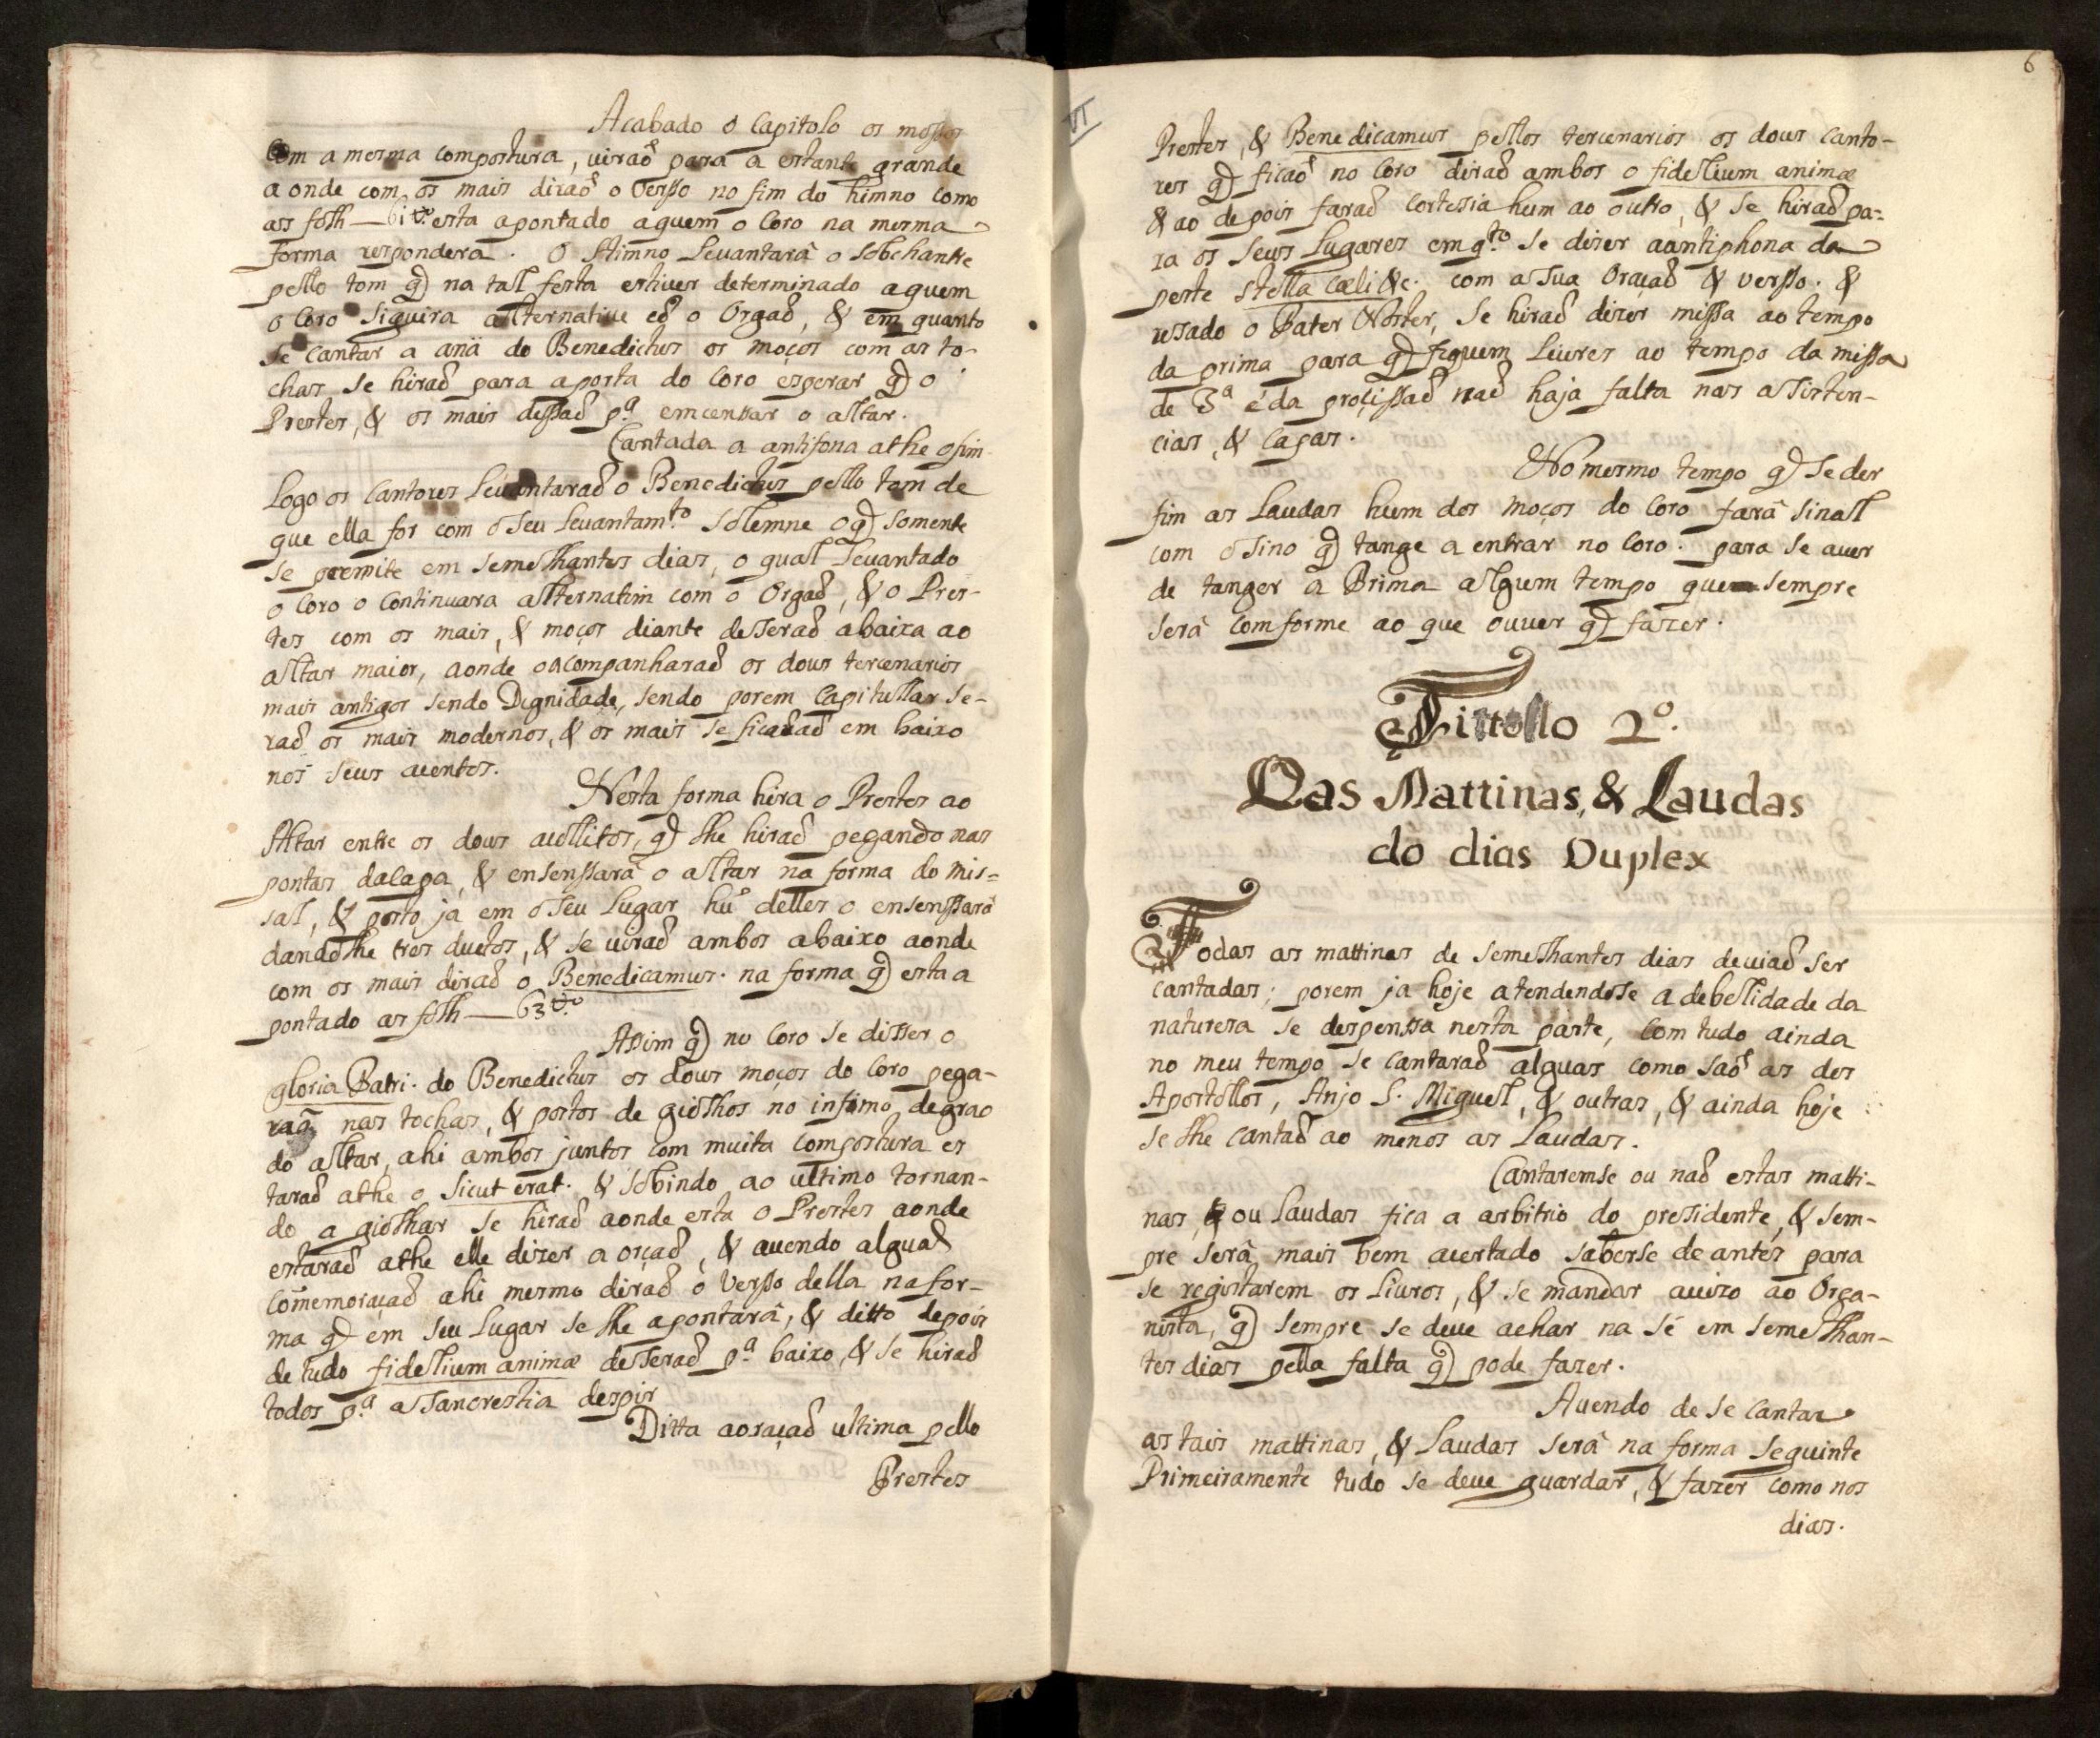 Acabado o Capitolo os mossos
Com a mesma compostura, viraõ para a estante grande
a onde com os mais diraõ o Verso no fim do himno como
as folh — 61 vº esta apontado aquem o Coro na mesma
forma responderá. O Himno Levantarâ o sobchantre
pello tom q̃ na tal festa estiver determinado aquem
o Coro siguira alternative cõ o Orgaõ, & em quanto
se cantar a anã do Benedictus os moços com as to-
chas se hiraõ para a porta do Coro esperar q̃ o
Prestes, & os mais dessaõ pª emcensar o altar.
Cantada a antifona athe o fim
Logo os Cantores Levantaraõ o Benedictus pello tom de
que ella for com o seu Levantamto solemne o q̃ somente
se premite em semelhantes dias, o qual Levantado
o Coro o Continuara alternatim com o Orgaõ, & o Pres-
tes com os mais, & moços diante desseraõ abaixa ao
altar maior, aonde o acompanharaõ os dous tercenarios
mais antigos sendo Dignidade, sendo porem Capitullar se-
raõ os mais modernos, & os mais se ficaraõ em baixo
nos seus acentos.
Nesta forma hira o Prestes ao
Altar entre os dous acollitos, q̃ lhe hiraõ pegando nas
pontas da capa, & ensenssarâ o altar na forma do mis-
sal, & posto ja em o seu Lugar hũ delles o ensenssarâ
dandolhe tres ductos, & se viraõ ambos abaixo aonde
com os mais diraõ o Benedicamus. na forma q̃ esta a
pontado as folh — 63 vº
Assim q̃ no Coro se disser o
gloria Patri. do Benedictus os dous moços do Coro pega-
raã nas tochas, & postos de giolhos no infimo degrao
do altar, ahi ambos juntos com muita compostura es
taraõ athe o Sicut erat. & sobindo ao ultimo tornan-
do a giolhar se hiraõ aonde esta o Prestes aonde
estaraõ athe elle dizer a orçaõ, & avendo algua
Comemoraçaõ ahi mesmo diraõ o Verso della na for-
ma q̃ em seu Lugar se lhe apontarâ, & ditto depois
de tudo fidelium animæ desseraõ pª baixo, & se hiraõ
todos pª a Sancrestia despir
Ditta a oraçaõ ultima pello
Prestes
6
VI
Prestes, & Benedicamus pellos tercenarios os dous Canto-
res q̃ ficaõ no Coro diraõ ambos o fidelium animæ
& ao depois faraõ Cortesia hum ao outro, & se hiraõ pa-
ra os seus Lugares em qto se dizer a antiphona da
peste Stella cæli &c. com a sua Oraçaõ & verso. &
resado o Pater Noster, se hiraõ dizer missa ao tempo
da prima para q̃ fiquem Livres ao tempo da missa
de 3ª é da procissaõ naõ haja falta nas assisten-
cias, & Capas.
No mesmo tempo q̃ se der
fim as Laudas hum dos moços do Coro farâ sinal
com o sino q̃ tange a entrar no Coro. para se aver
de tanger a Prima algum tempo que sempre
serâ comforme ao que ouver q̃ fazer.
Tittollo 2º.
Das Mattinas, & Laudas
do dias Duplex
Todas as mattinas de semelhantes dias deviaõ ser
cantadas; porem ja hoje atendendose a debelidade da
naturesa se despenssa nesta parte, Com tudo ainda
no meu tempo se cantaraõ alguas como saõ as dos
Apostollos, Anjo S. Miguel, & outras, & ainda hoje
se lhe cantaõ ao menos as Laudas.
Cantaremse ou naõ estas matti-
nas, ou Laudas fica a arbitrio do presidente, & sem-
pre serâ mais bem acertado saberse de antes para
se registarem os Livros, & se mandar aviso ao Orga-
nista, q̃ sempre se deve achar na Sé em semelhan-
tes dias pella falta q̃ pode fazer.
Avendo de se Cantar
as tais mattinas, & Laudas serâ na forma seguinte
Primeiramente tudo se deve guardar, & fazer como nos
dias.